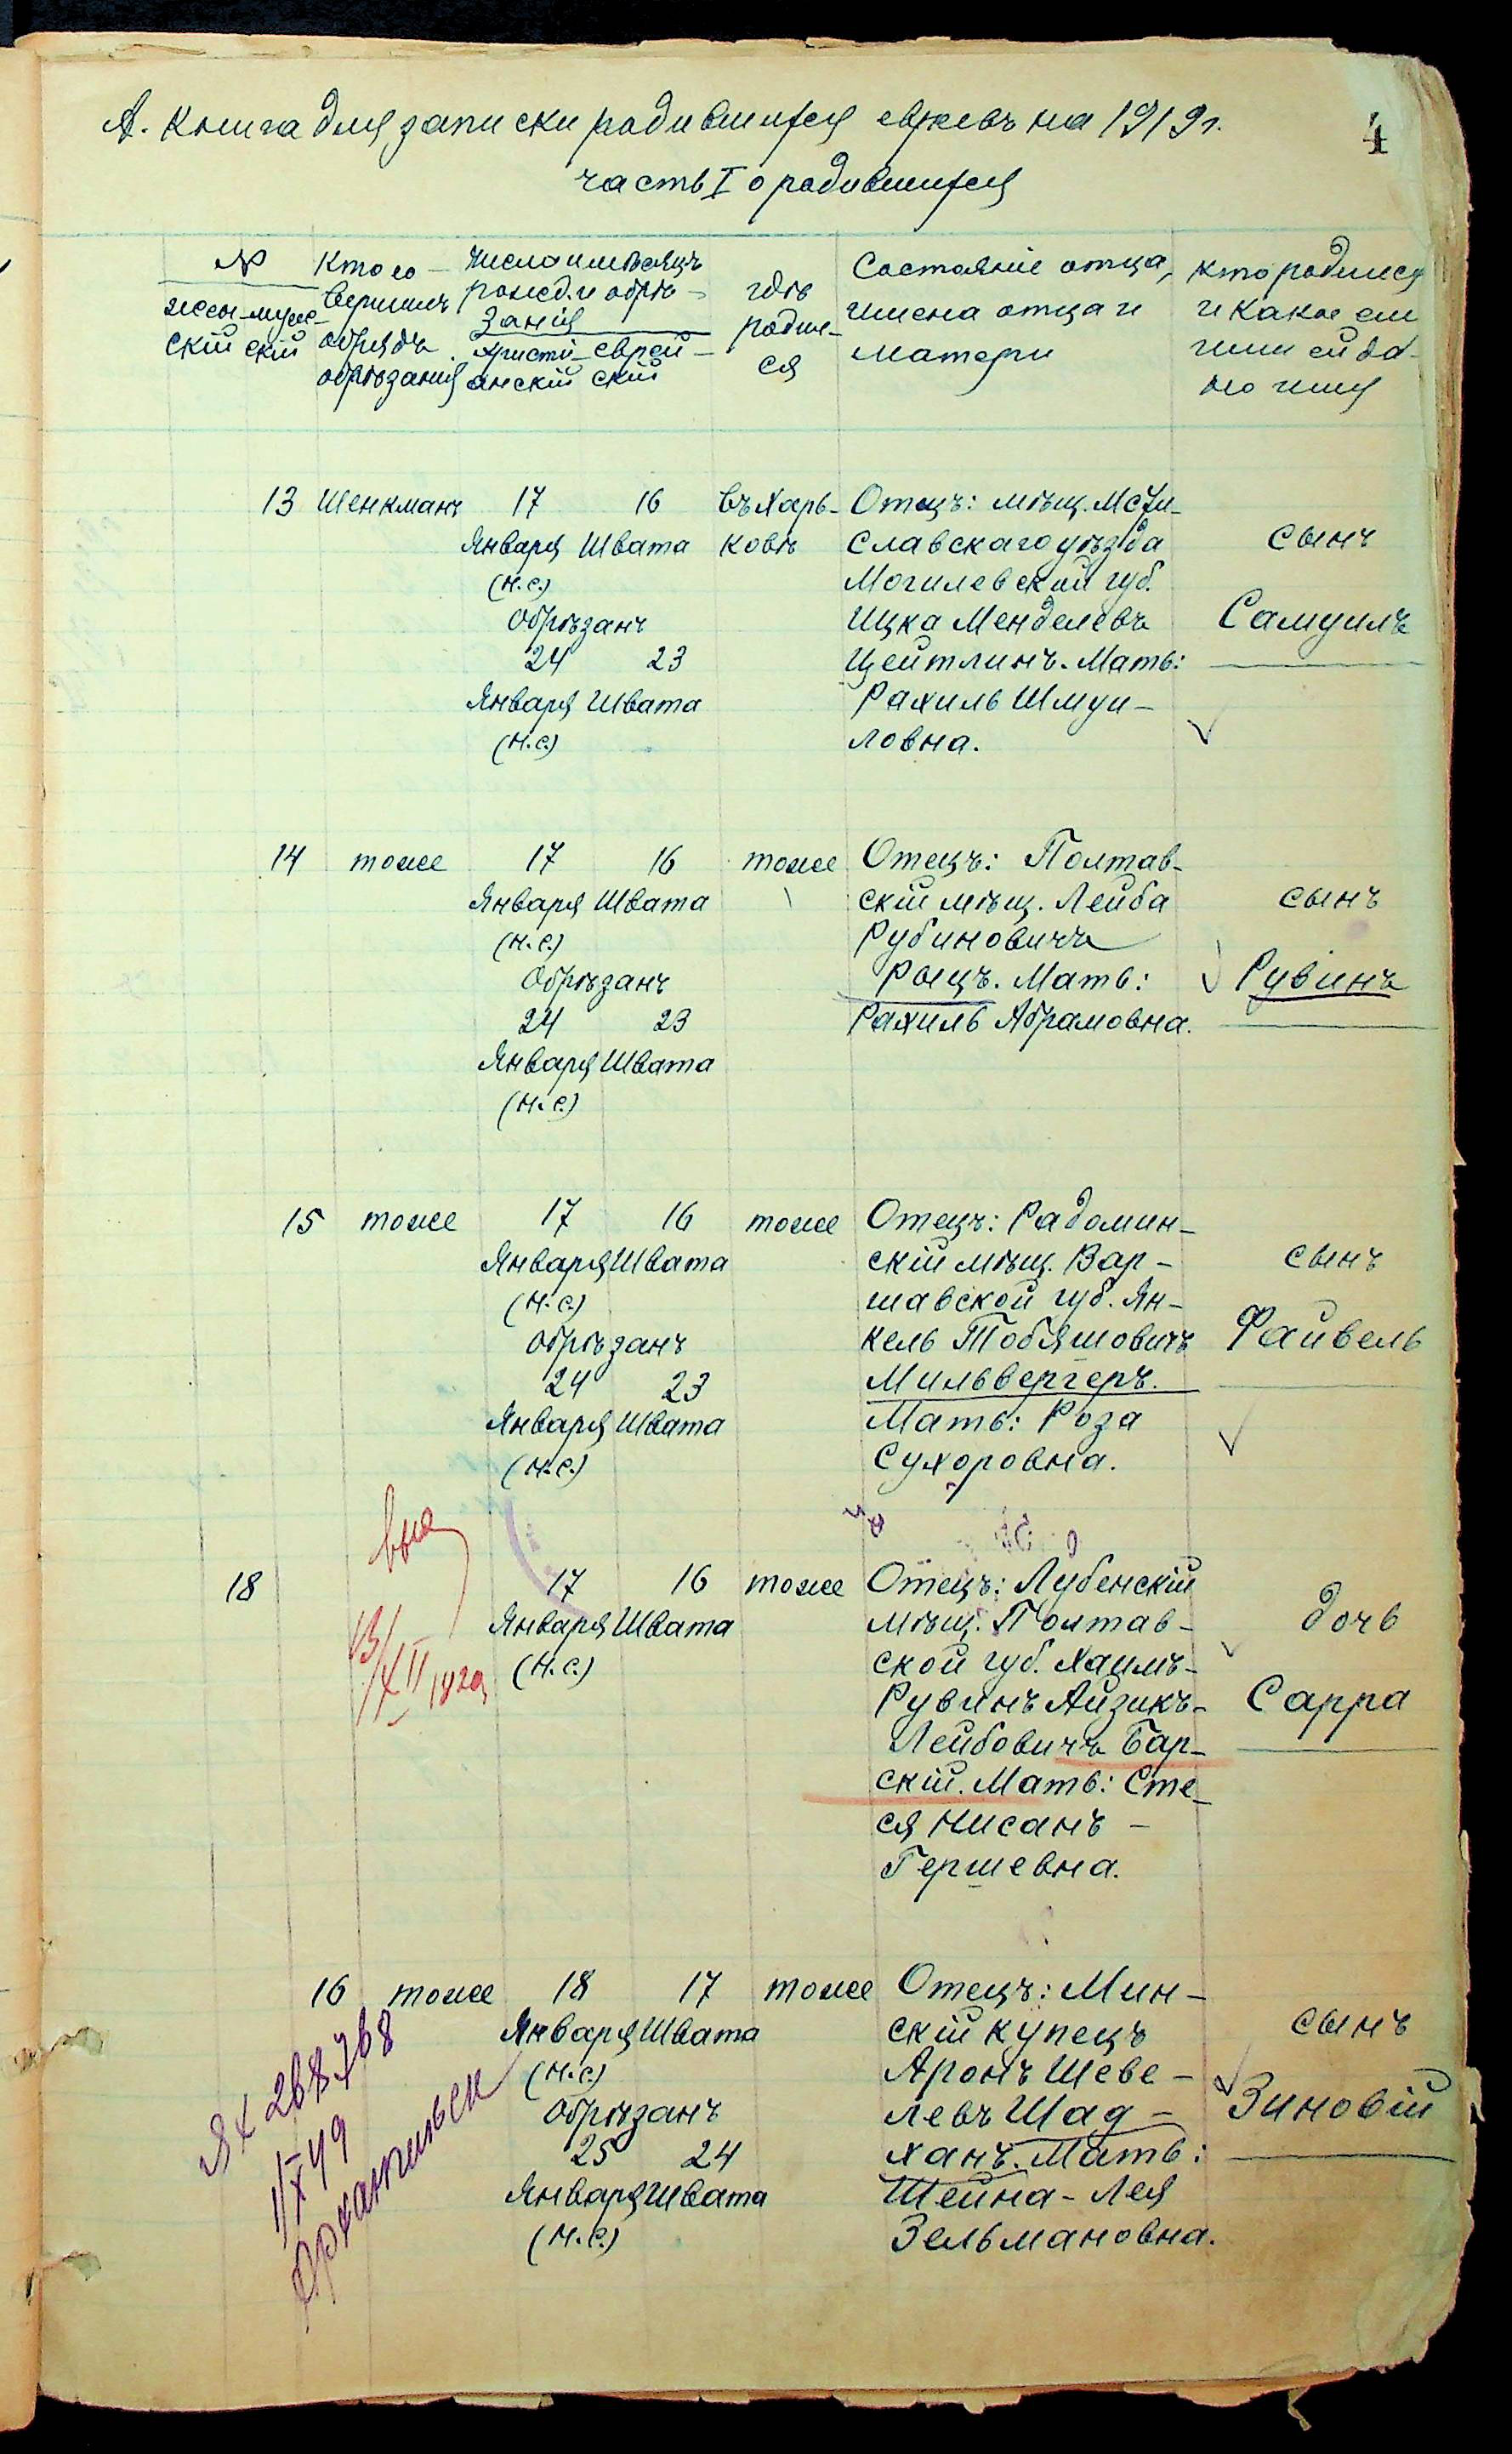 А. Книга для записки родившихся евреевъ на 1919 г.
4
часть I о родившихся
№
женскій мужескій
Кто совершилъ обрядъ обрѣзанія
Число и мѣсяцъ рожед. и обрѣзанія
Христіанскій Еврейскій
гдѣ родился
Состояніе отца, имена отца и матери
кто родился и какое ему или ей дано имя
13 Шенкманъ 17 16 въ Харь- Отецъ: мѣщ. Мсти-
Января Швата ковѣ славскаго уѣзда сынъ
(н.с.) Могилевской губ.
Обрѣзанъ Ицка Менделевъ Самуилъ
24 23 Цейтлинъ. Мать:
Января Швата Рахиль Шмуи-
(н.с.) ловна.
14 тоже 17 16 тоже Отецъ: Полтав-
Января Швата скій мѣщ. Лейба сынъ
(н.с.) Рубиновичъ
Обрѣзанъ Рыцъ. Мать: Рувинъ
24 23 Рахиль Абрамовна.
Января Швата
(н.с.)
15 тоже 17 16 тоже Отецъ: Радомин-
Января Швата скій мѣщ. Вар- сынъ
(н.с.) шавской губ. Ян-
обрѣзанъ кель Тобяшовичъ Файвель
24 23 Мильвергеръ.
Января Швата Мать: Роза
(н.с.) Сухоровна.
18 17 16 тоже Отецъ: Лубенскій
Января Швата мѣщ. Полтав- дочь
(н.с.) ской губ. Хаимъ-
Рувинъ Айзикъ- Сарра
Лейбовичъ Бар-
скій. Мать: Сте-
ся Нисанъ-
Гершевна.
16 тоже 18 17 тоже Отецъ: Мин-
Января Швата скій купецъ сынъ
(н.с.) Аронъ Шеве-
Обрѣзанъ левъ Шад- Зиновій
25 24 ханъ. Мать:
Января Швата Шейна-Лея
(н.с.) Зельмановна.
ЯХ 268768
1/X 49
Архангельск